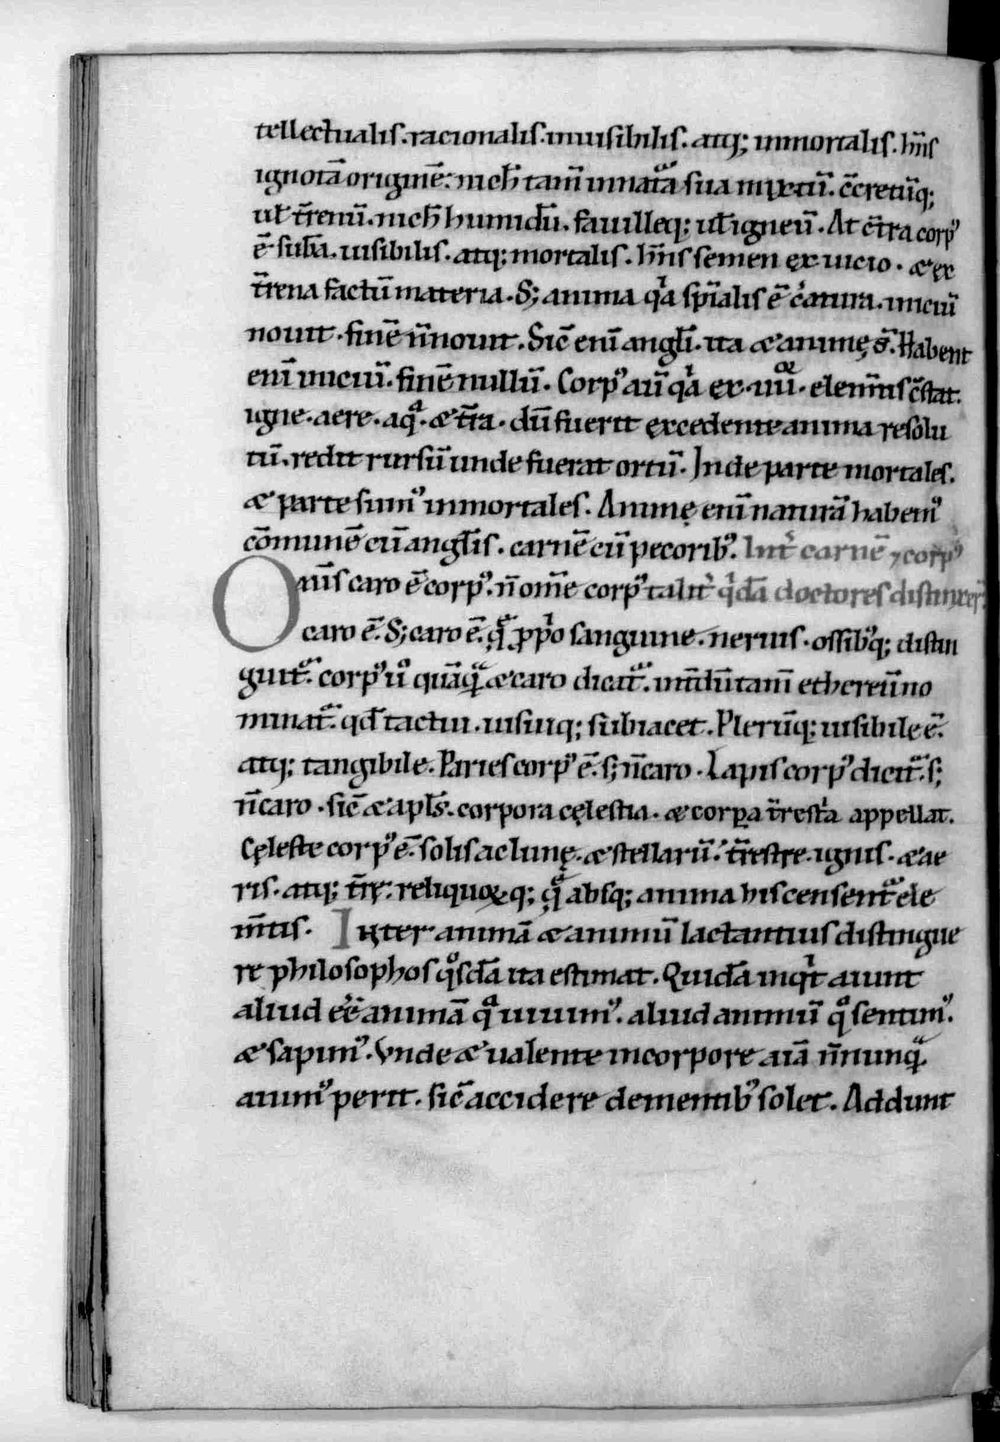 tellectualis. racionalis. inuisibilis. atq; inmortalis. hñs
ignotā originē. nichͥ tam̄ innatͣa sua mixtū. c̄cretūq;
uł t̄renū. nichͥ humidū. fauilleq; uł igneū. At c̄tra corpꝰ
ē suƀa. uisibilis. atq; mortalis. hñs semen ex uicio. & ex
t̄rena factū materia. S; anima qͥa sp̄ialis ē c̾atura. iniciū
nouit. finē n̄ nouit. Sic̄ enī angłi. ita & animę s̄. Habent
enī iniciū. finē nullū. Corpꝰ aū qͥa ex .iiiiᵒʳ. elem̄tis c̄stat.
igne. aere. aqͣ. & t̄ra. dū fuerit excedente anima resolu
tū. redit rursū unde fuerat ortū. Inde parte mortales.
& parte sumꝰ inmortales. Animę enī naturā habemꝰ
cōmunē cū angłis. carnē cū pecoribꝰ. Int̾ carnē ⁊ corpꝰ
Om̄is caro ē corpꝰ. n̄ om̄e corpꝰ talit̾ qͥdā doctores distinxer̄.
caro ē. S; caro ē. qͣ ꝓpͥo sanguine. neruis. ossibꝰq; distin
guitᷣ. corpꝰ uͦ quāqͣ & caro dicatᷣ. int̄dū tam̄ ethereū no
minatᷣ. qđ tactui. uisuiq; subiacet. Plerūq; uisibile ē.
atq; tangibile. Paries corpꝰ ē. s; n̄ caro. Lapis corpꝰ dicitᷣ. s;
n̄ caro. sic̄ & apłs. corpora cęlestia. & corꝑa t̄restͥa appellat.
Cęleste corpꝰ ē. solis ac lunę. & stellarū. t̄restre. ignis. & ae
ris. atq; t̄rę. reliquoꝝq; qͣ absq; anima his censentᷣ ele
m̄tis. Inter animā & animū lactantius distingue
re philosophos qͦsdā ita estimat. Quidā inqͥt aiunt
aliud eē animā qͣ uiuimꝰ. aliud animū qͦ sentimꝰ.
& sapimꝰ. Vnde & ualente in corpore aīā n̄nunqͣ
animꝰ perit. sic̄ accidere dementibꝰ solet. Addunt